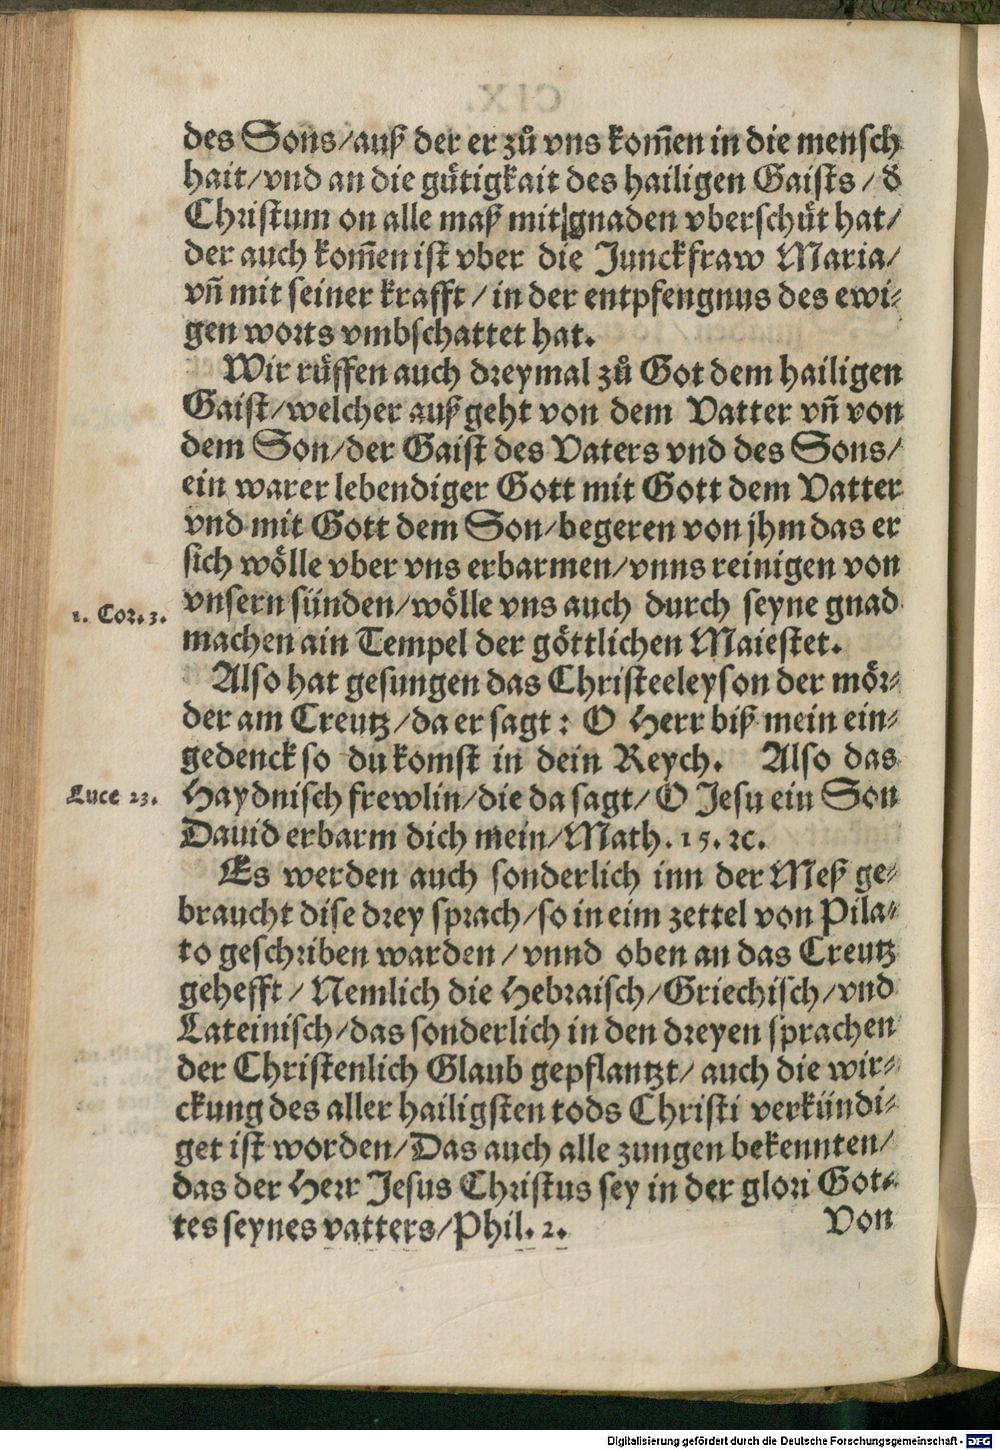 des Sons/auß der er zů vns kom̃en in die mensch
hait/vnd an die gütigkait des hailigen Gaists / d̕
Christum on alle maß mit gnaden vberschüt hat/
der auch kom̃en ist vber die Junckfraw Maria/
vñ mit seiner krafft / in der entpfengnus des ewi-
gen worts vmbschattet hat.
Wir rüffen auch dreymal zů Got dem hailigen
Gaist/welcher auß geht von dem Vatter vñ von
dem Son/der Gaist des Vaters vnd des Sons/
ein warer lebendiger Gott mit Gott dem Vatter
vnd mit Gott dem Son/begeren von jhm das er
sich wölle vber vns erbarmen/vnns reinigen von
1. Cor. 3. vnsern sünden/wölle vns auch durch seyne gnad
machen ain Tempel der göttlichen Maiestet.
Also hat gesungen das Christeeleyson der mör-
der am Creutz/da er sagt: O Herr biß mein ein-
gedenck so du komst in dein Reych. Also das
Luce 23. Haydnisch frewlin/die da sagt/O Jesu ein Son
Dauid erbarm dich mein/Math. 15. ꝛc.
Es werden auch sonderlich inn der Meß ge-
braucht dise drey sprach/so in eim zettel von Pila-
to geschriben warden / vnnd oben an das Creutz
gehefft / Nemlich die Hebraisch/Griechisch/vnd
Lateinisch/das sonderlich in den dreyen sprachen
der Christenlich Glaub gepflantzt/ auch die wir-
ckung des aller hailigsten tods Christi verkündi-
get ist worden/Das auch alle zungen bekennten/
das der Herr Jesus Christus sey in der glori Got-
tes seynes vatters/Phil. 2.
Von
Digitalisierung gefördert durch die Deutsche Forschungsgemeinschaft - DFG